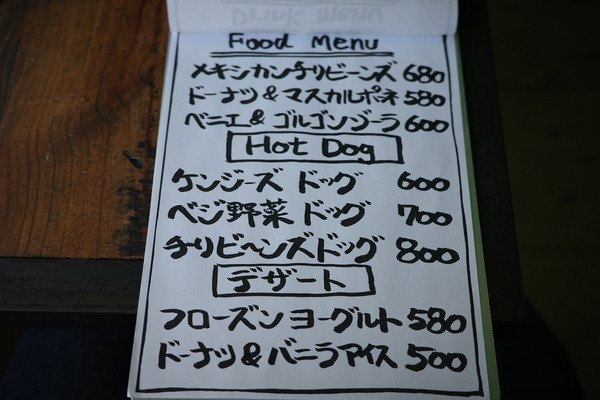 Drink menu
Food Menu
メキシカンチリビーンズ 680
ドーナツ&マスカルポネ 580
ベニエ&ゴルゴンゾーラ 600
Hot Dog
ケンジーズ ドッグ 600
ベジ野菜 ドッグ 700
チリビーンズドッグ 800
デザート
フローズンヨーグルト 580
ドーナツ&バニラアイス 500